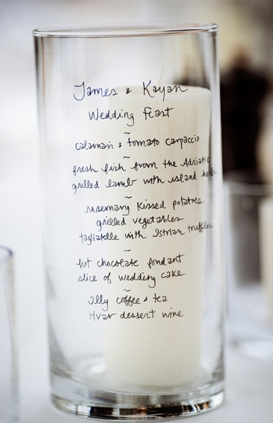 James & Kayan
Wedding Feast
~
calamari & tomato carpaccio
~
fresh fish from the Adriatic
grilled lamb with island herbs
~
rosemary kissed potatoes
grilled vegetables
tagliatelle with Istrian truffles
~
hot chocolate fondant
slice of wedding cake
~
illy coffee & tea
Hvar dessert wine